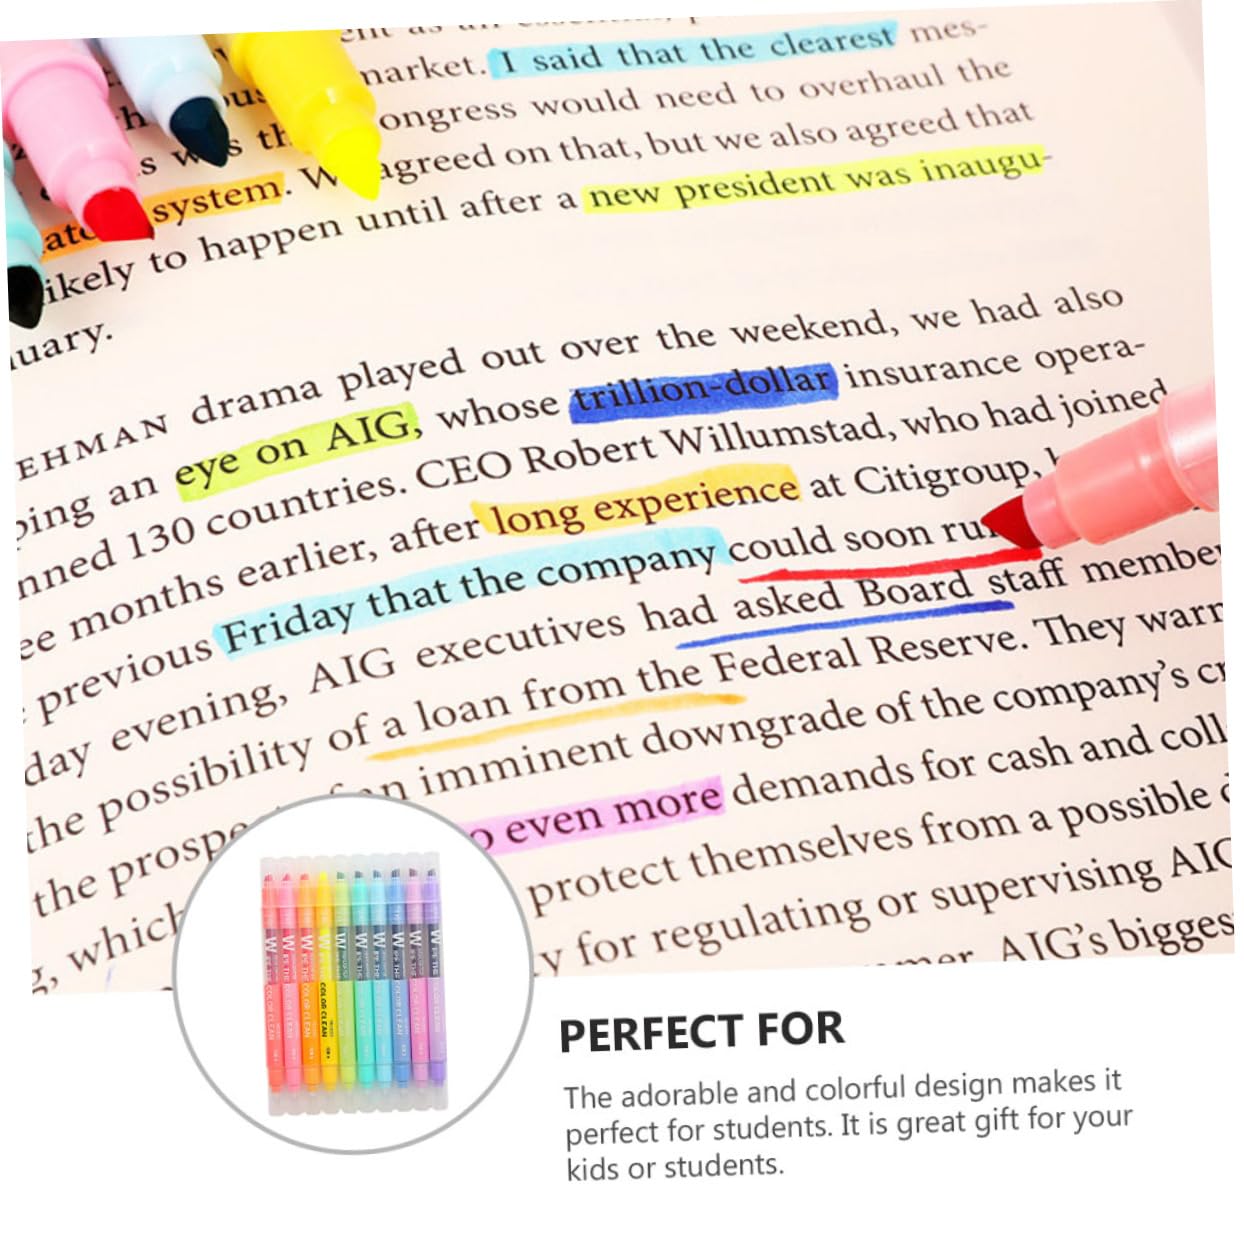 market. I said that the clearest mes-
ongress would need to overhaul the
system. agreed on that, but we also agreed that
likely to happen until after a new president was inaugu-
uary.
EHMAN drama played out over the weekend, we had also
ping an eye on AIG, whose trillion-dollar insurance opera-
nned 130 countries. CEO Robert Willumstad, who had joined
ee months earlier, after long experience at Citigroup,
previous Friday that the company could soon
day evening, AIG executives had asked Board staff member
the possibility of a loan from the Federal Reserve. They warn
the prospe an imminent downgrade of the company's cr
o even more demands for cash and coll
, which protect themselves from a possible
y for regulating or supervising AIG
AIG's biggest
WE'RE THE COLOR CLEAN
PERFECT FOR
The adorable and colorful design makes it
perfect for students. It is great gift for your
kids or students.